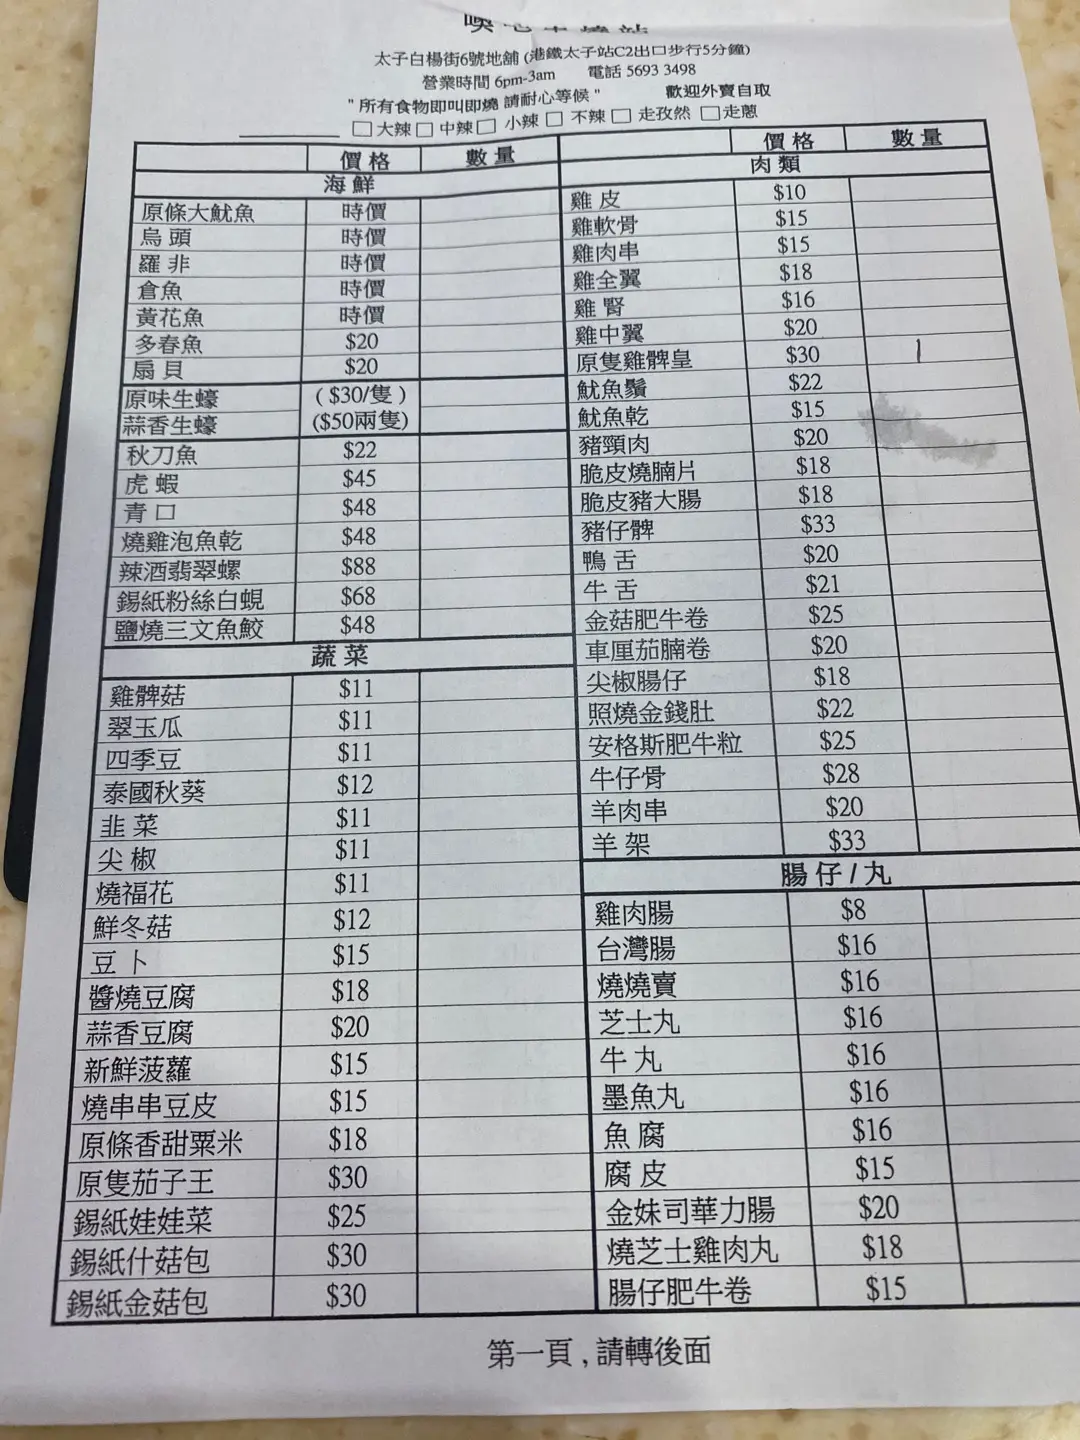 太子白楊街6號地舖 (港鐵太子站C2出口步行5分鐘)
營業時間 6pm-3am 電話 5693 3498
"所有食物即叫即燒 請耐心等候" 歡迎外賣自取
大辣 中辣 小辣 不辣 走孜然 走蔥
價格 數量
海鮮
原條大魷魚 時價
烏頭 時價
羅非 時價
倉魚 時價
黃花魚 時價
多春魚 $20
扇貝 $20
原味生蠔 ($30/隻)
蒜香生蠔 ($50兩隻)
秋刀魚 $22
虎蝦 $45
青口 $48
燒雞泡魚乾 $48
辣酒翡翠螺 $88
錫紙粉絲白蜆 $68
鹽燒三文魚鮫 $48
蔬菜
雞髀菇 $11
翠玉瓜 $11
四季豆 $11
泰國秋葵 $12
韭菜 $11
尖椒 $11
燒福花 $11
鮮冬菇 $12
豆卜 $15
醬燒豆腐 $18
蒜香豆腐 $20
新鮮菠蘿 $15
燒串串豆皮 $15
原條香甜粟米 $18
原隻茄子王 $30
錫紙娃娃菜 $25
錫紙什菇包 $30
錫紙金菇包 $30
價格 數量
肉類
雞皮 $10
雞軟骨 $15
雞肉串 $15
雞全翼 $18
雞腎 $16
雞中翼 $20
原隻雞髀皇 $30 1
魷魚鬚 $22
魷魚乾 $15
豬頸肉 $20
脆皮燒腩片 $18
脆皮豬大腸 $18
豬仔髀 $33
鴨舌 $20
牛舌 $21
金菇肥牛卷 $25
車厘茄腩卷 $20
尖椒腸仔 $18
照燒金錢肚 $22
安格斯肥牛粒 $25
牛仔骨 $28
羊肉串 $20
羊架 $33
腸仔/丸
雞肉腸 $8
台灣腸 $16
燒燒賣 $16
芝士丸 $16
牛丸 $16
墨魚丸 $16
魚腐 $16
腐皮 $15
金妹司華力腸 $20
燒芝士雞肉丸 $18
腸仔肥牛卷 $15
第一頁,請轉後面